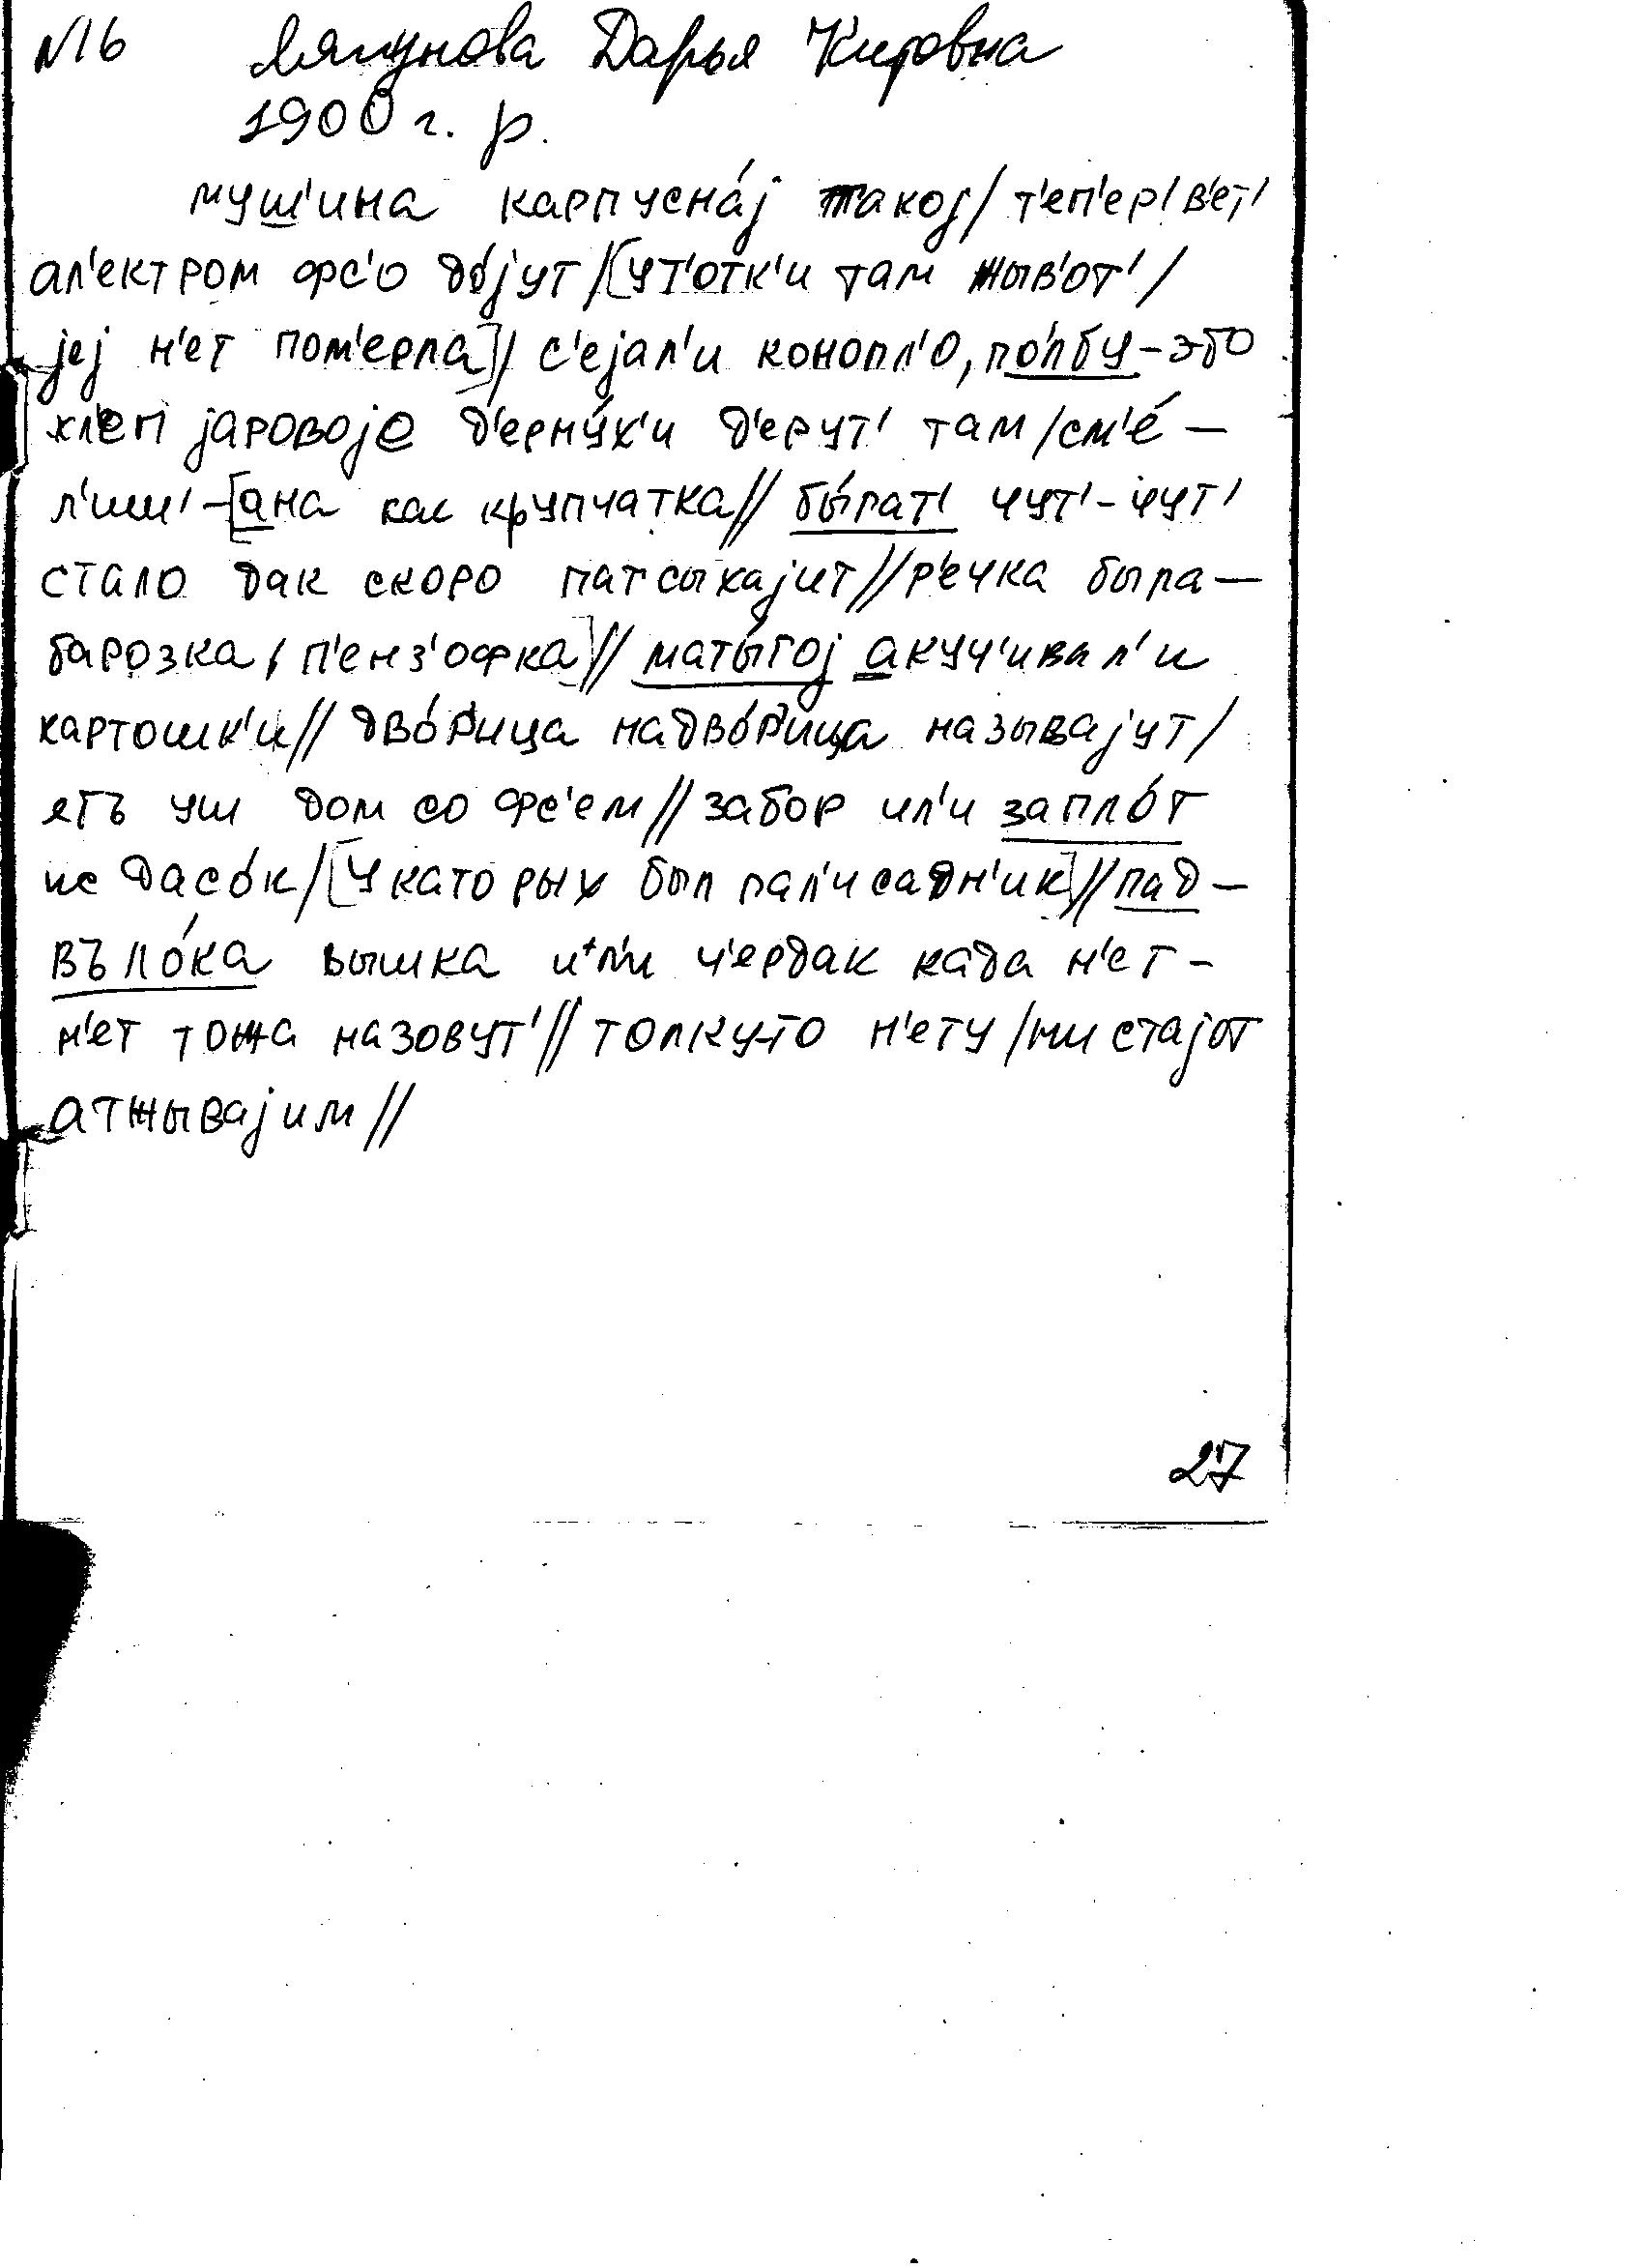 №16 Лягунова Дарья Титовна
1900 г. р.
муш'ина карпусна́ј такој/ т'еп'ер' в'ет'
ал'ектром фс'о до́јут/[ у т'отк'и там жыв'от'/
јеј н'ет пом'ерла]/ с'ејал'и конопл'о, по́лбу - это
хл'еп јаровоје д'ерну́х'и д'ерут' там/см'е́ -
л'иш' - [ана как крупчатка// бы́гат' чут'-чут'
стало дак скоро патсыхајит// р'ечка была -
барозка, п'енз'офка]// маты́гој акуч'ивал'и
картошк'и// дво́р'ица надво́р'ица называјут/
уш дом со фс'ем// забор ил'и запло́т
ис дасо́к/ [у каторых был пал'исадн'ик]// пад -
въло́ка вышка ил'и ч'ердак када н'ет -
н'ет тожа назовут'// толку-то н'ету /ни стајот
атжывајим//
27